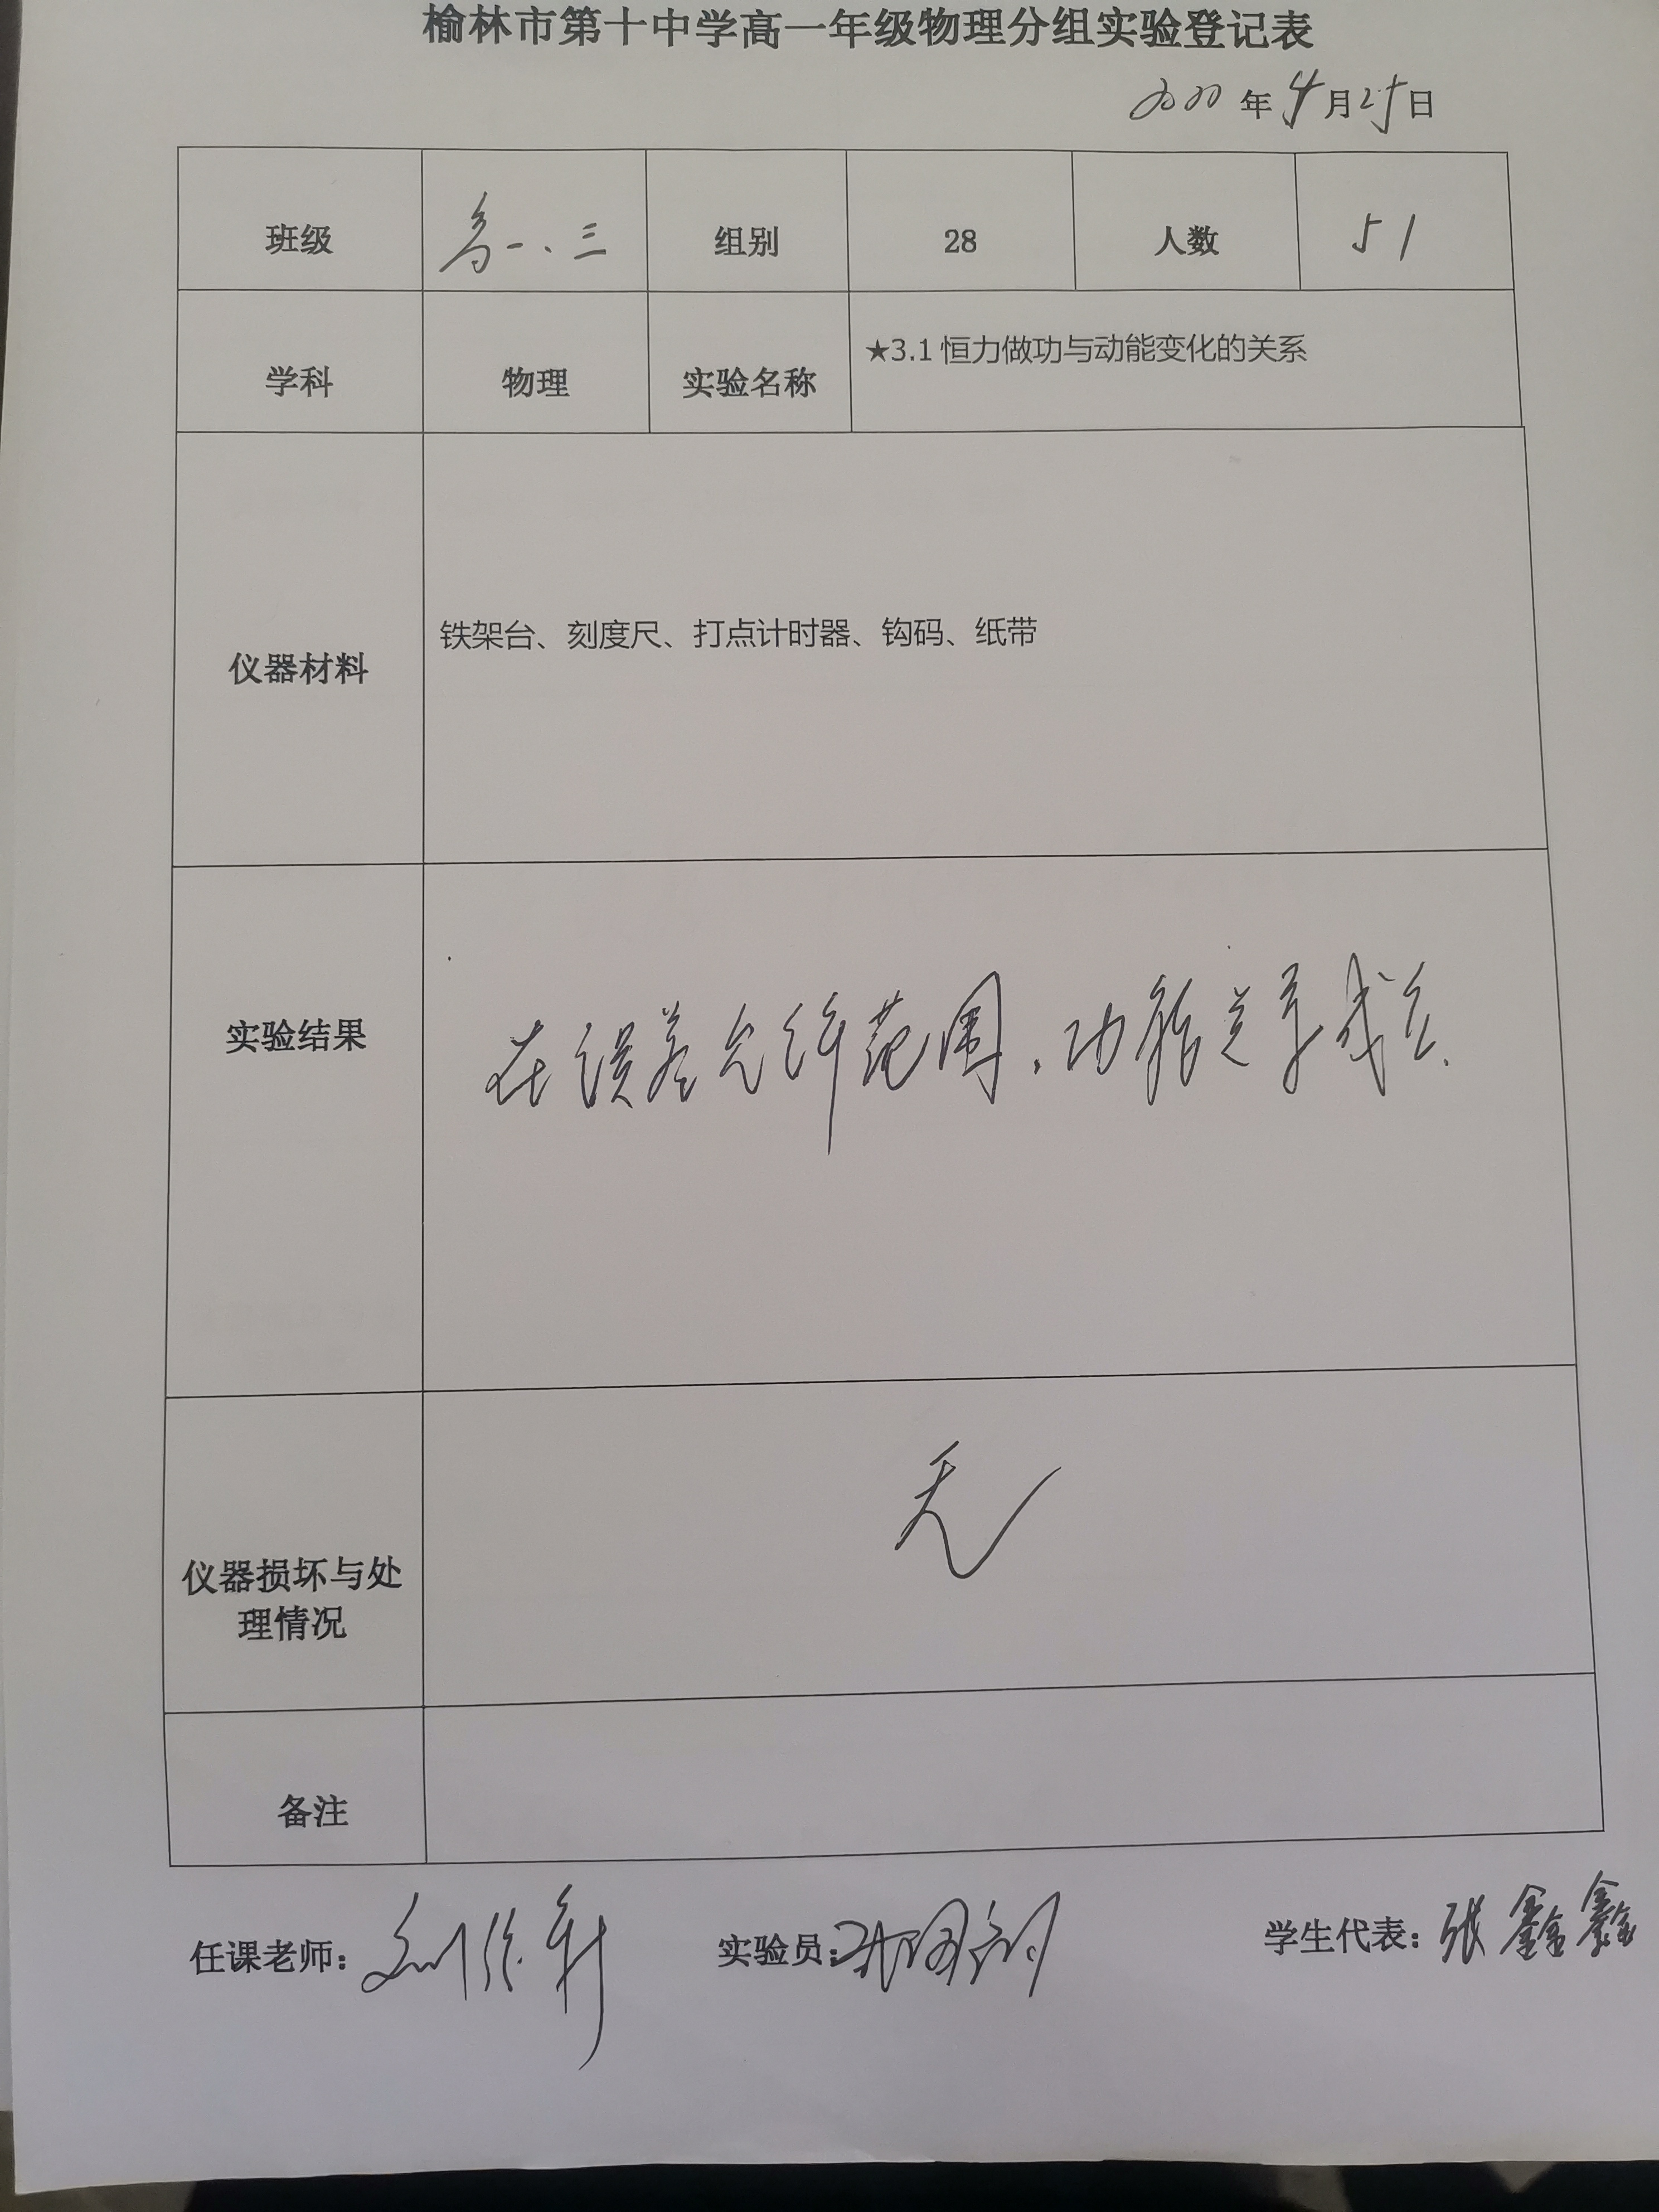 榆林市第十中学高一年级物理分组实验登记表
年4月25日
班级 高一、三 组别 28 人数 51
学科 物理 实验名称 ★3.1恒力做功与动能变化的关系
仪器材料 铁架台、刻度尺、打点计时器、钩码、纸带
实验结果 在误差允许范围,功能关系成立.
仪器损坏与处
理情况
无
备注
任课老师: 实验员: 学生代表:张鑫鑫